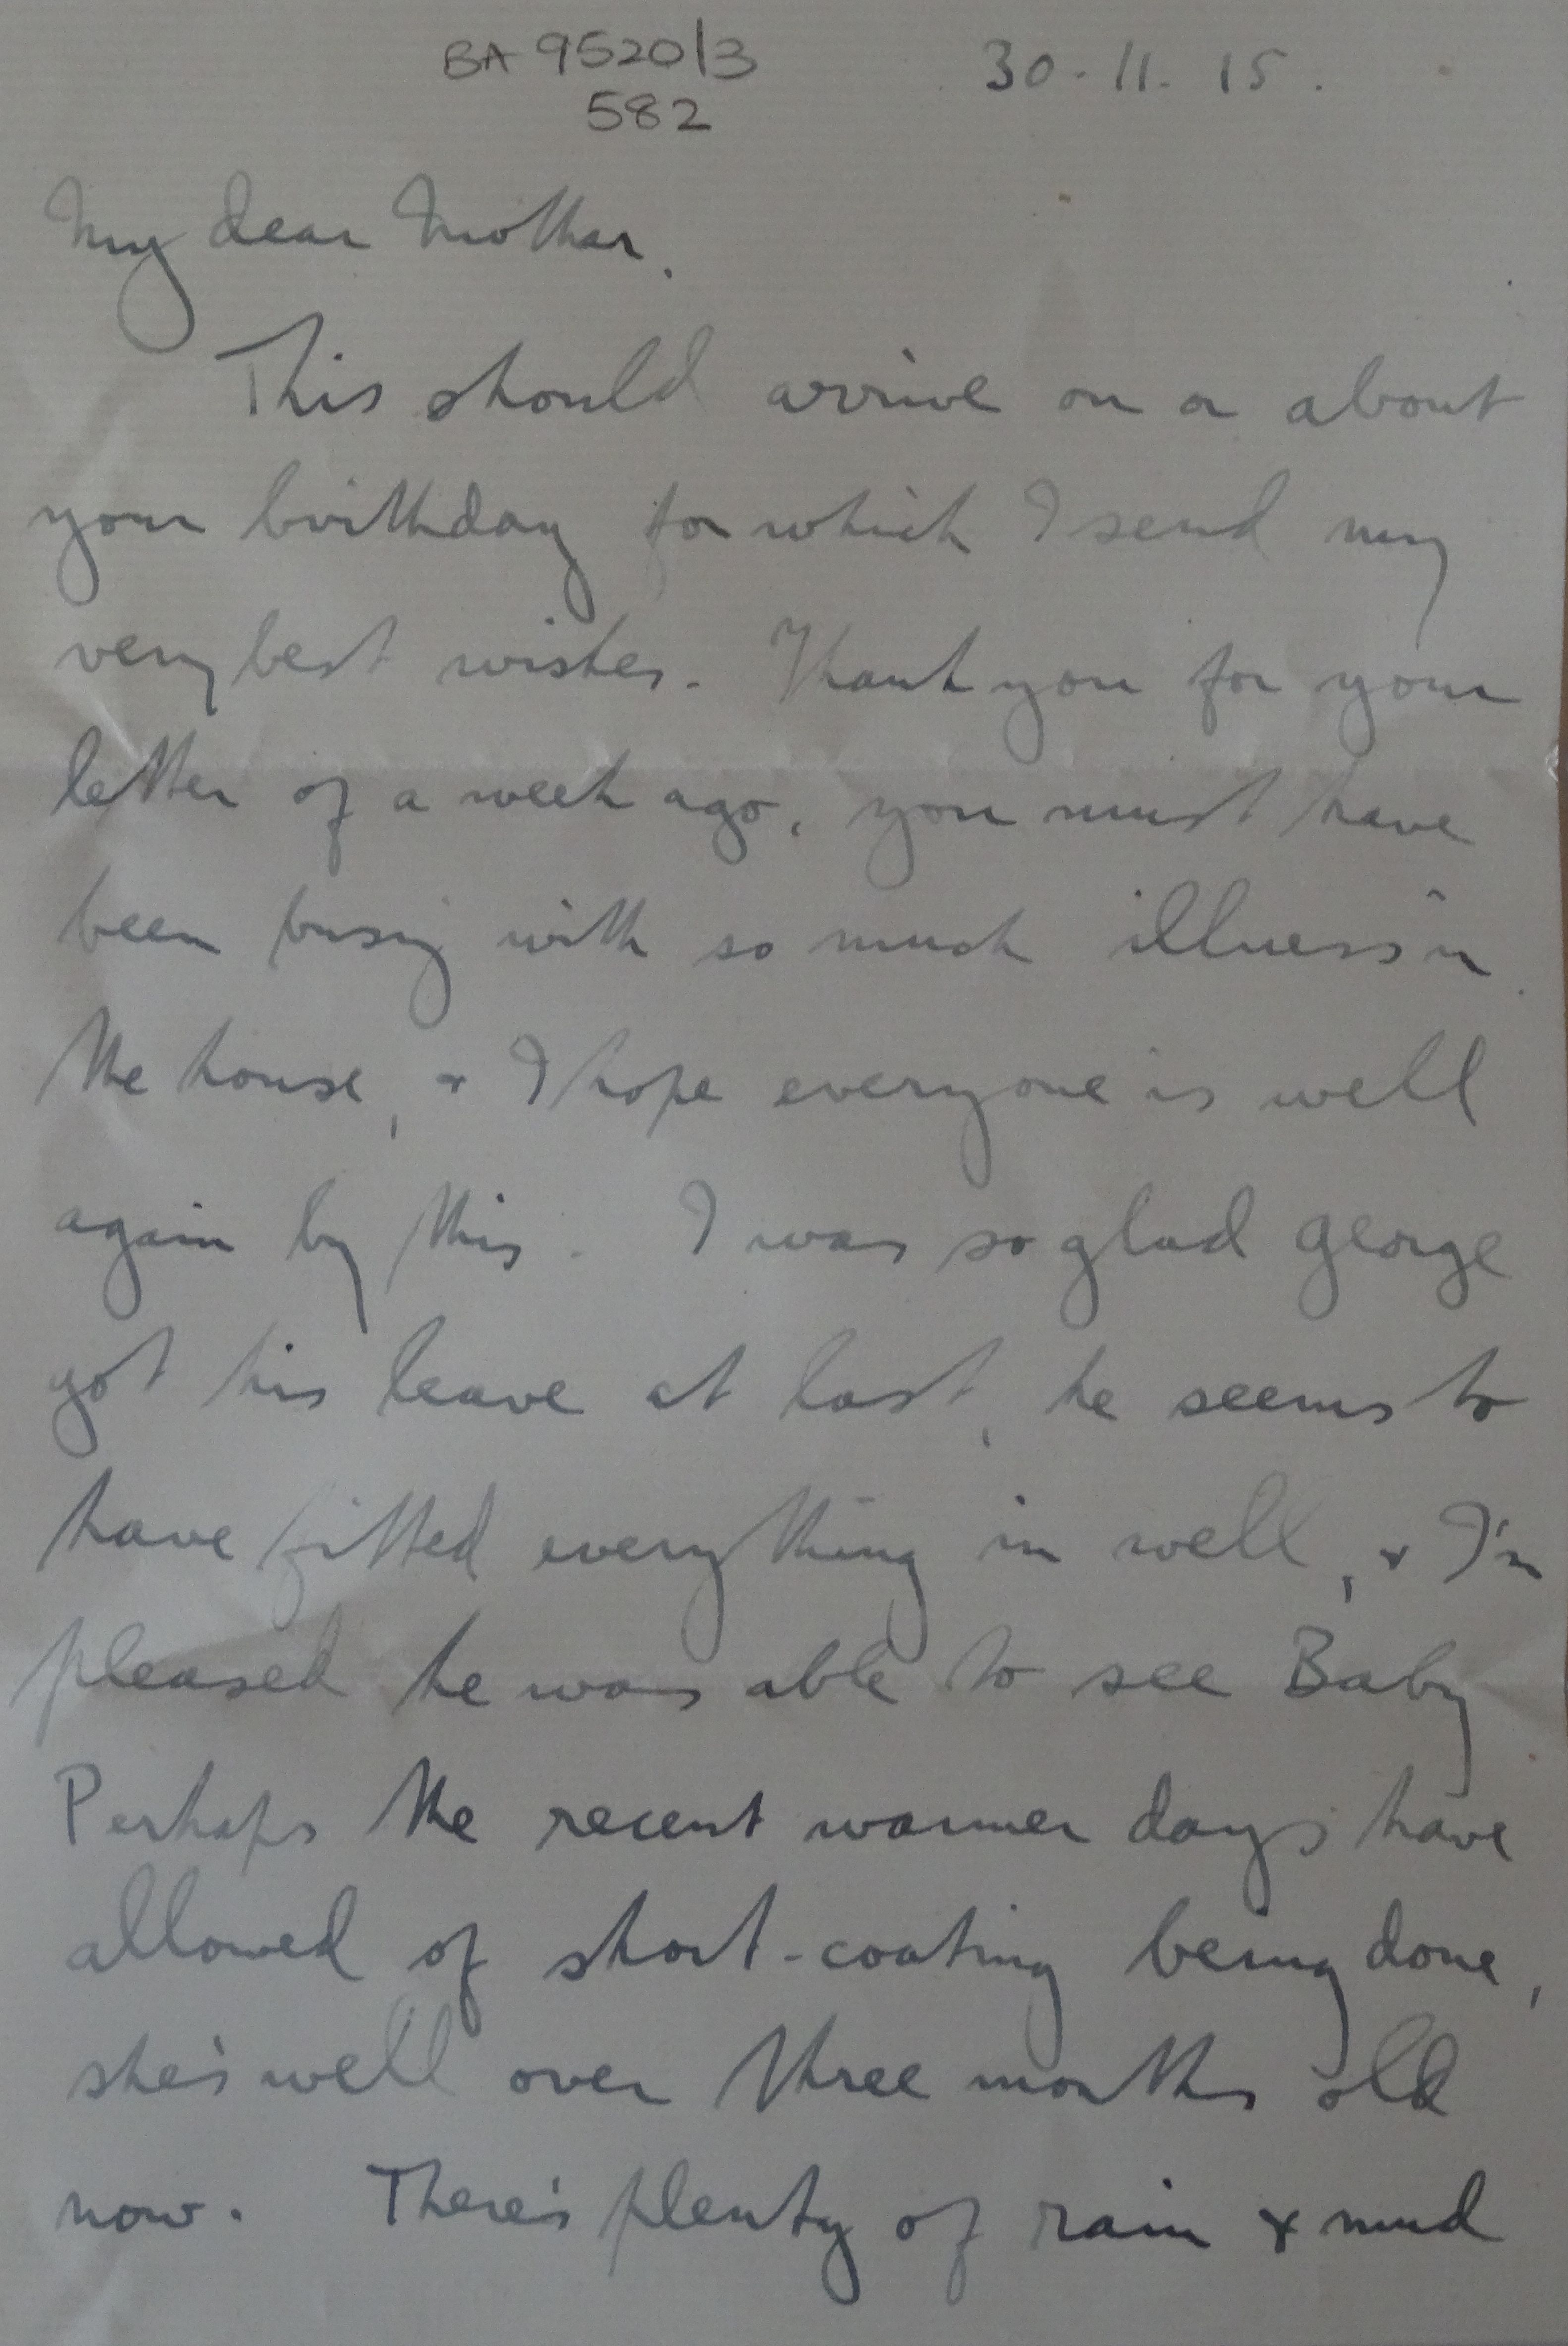 BA 9520/3
582
30-11-15.
My dear Mother.
This should arrive on or about
your birthday for which I send my
very best wishes. Thank you for your
letter of a week ago, you must have
been busy with so much illness in
the house, & I hope everyone is well
again by this. I was so glad George
got his leave at last, he seems to
have fitted everything in well, & I'm
pleased he was able to see Baby
Perhaps the recent warmer days have
allowed of short-coating being done,
she's well over three months old
now. There's plenty of rain & mud